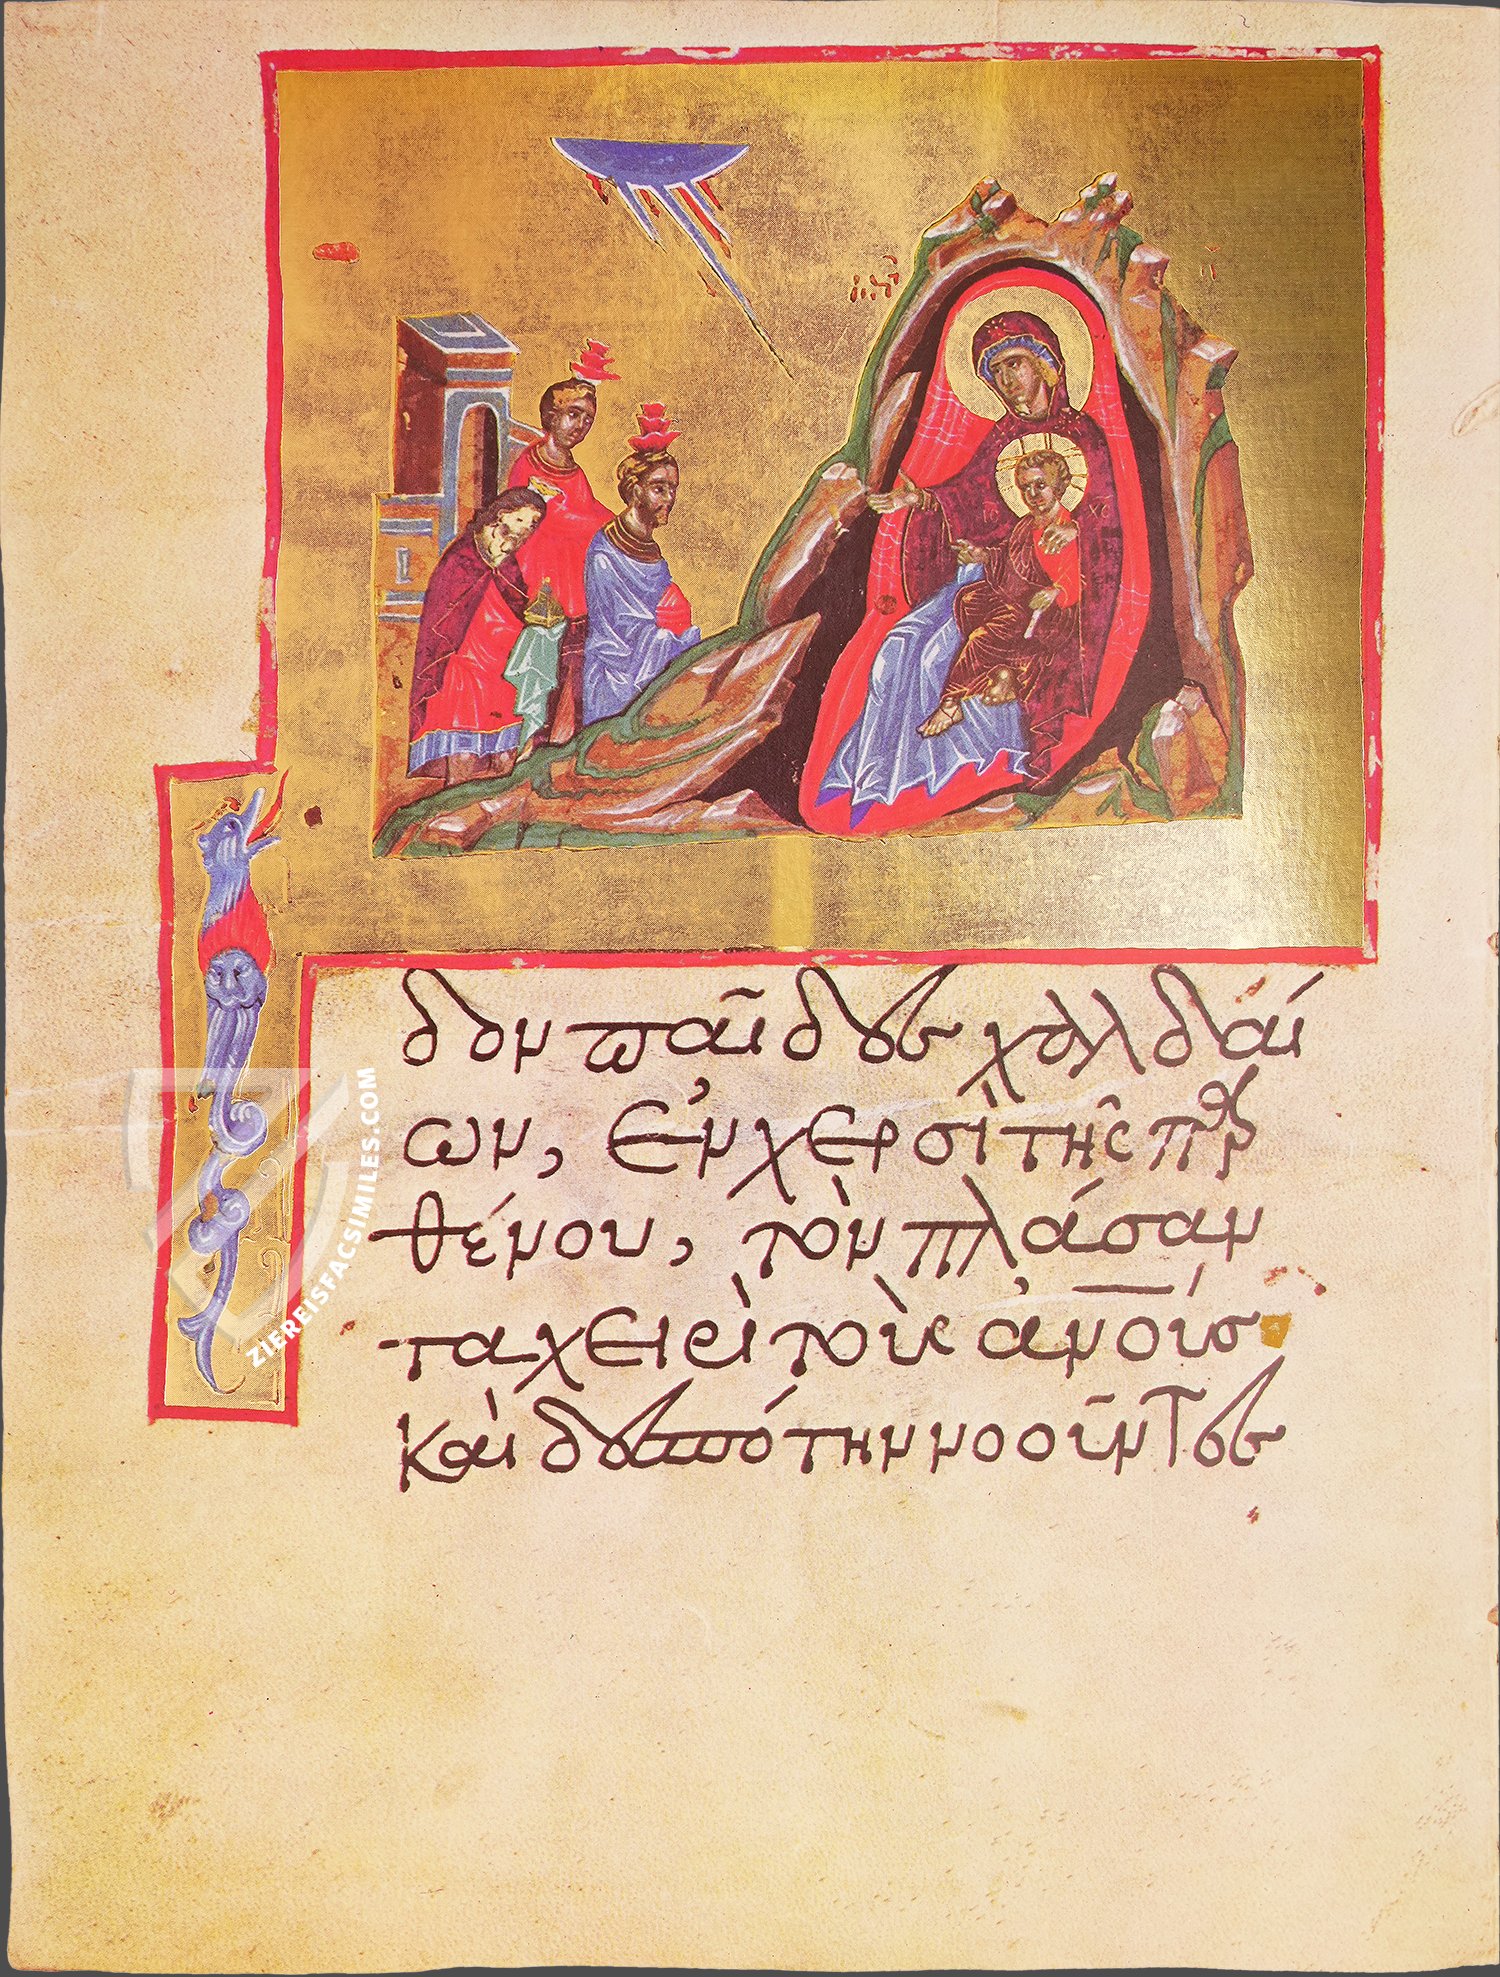 ΙC ΧC
δον παῖδες χαλδαί
ων, ἐν χερσὶ τῆς παρ
θένου, τὸν πλάσαν
τα χειρὶ τοὺς ἀν̅ο̅υ̅ς
καὶ δεσπότην νοοῦντες
ZIEREISFACSIMILES.COM